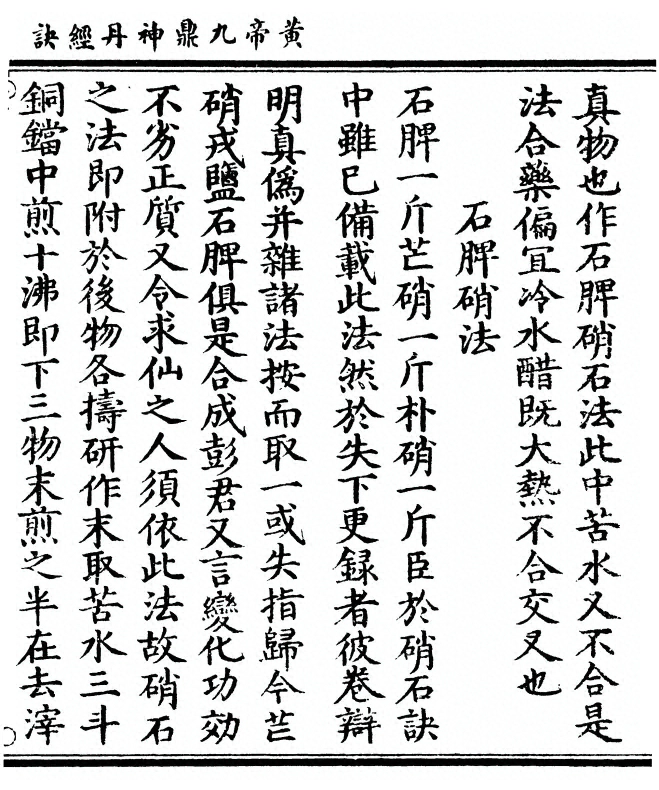 黃帝九鼎神丹經訣
真物也作石脾硝石法此中苦水又不合是
法合藥偏宜冷水醋既大熱不合交叉也
石脾硝法
石脾一斤芒硝一斤朴硝一斤臣於硝石訣
中雖已備載此法然於失下更録者彼卷辯
明真僞并雜諸法按而取一或失指歸今芒
硝戎鹽石脾俱是合成彭君又言變化功効
不劣正質又令求仙之人須依此法故硝石
之法即附於後物各擣研作末取苦水三斗
銅鐺中煎十沸即下三物末煎之半在去滓